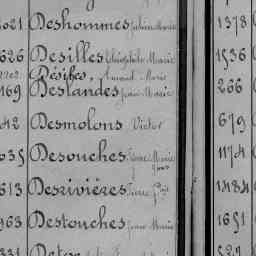 021 Deshommes Julien Marie 1378
626 Desilles Théophile Marie 1536
Désilles, Armand Marie
169 Deslandes Jean Marie 266
42 Desmolons Victor 679
035 Desouches Pierre Marie 1174
613 Desrivières Pierre 1484
963 Destouches Jean Marie 1651
331 527